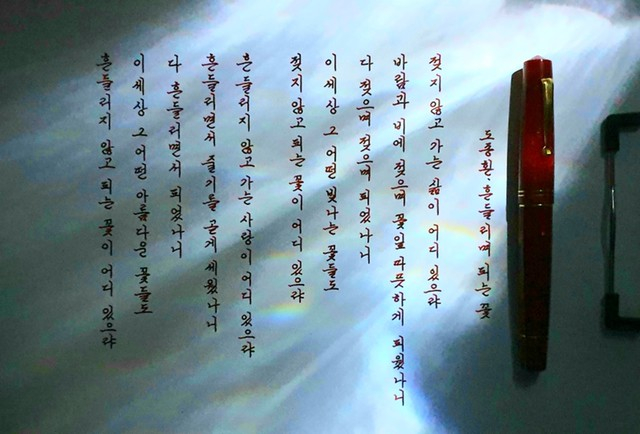 흔들리지 않고 피는 꽃이 어디 있으랴
이 세상 그 어떤 아름다운 꽃들도
다 흔들리면서 피었나니
흔들리면서 줄기를 곧게 세웠나니
흔들리지 않고 가는 사랑이 어디 있으랴
젖지 않고 피는 꽃이 어디 있으랴
이 세상 그 어떤 빛나는 꽃들도
다 젖으며 젖으며 피었나니
바람과 비에 젖으며 꽃잎 따뜻하게 피웠나니
젖지 않고 가는 삶이 어디 있으랴
도종환. 흔들리며 피는 꽃